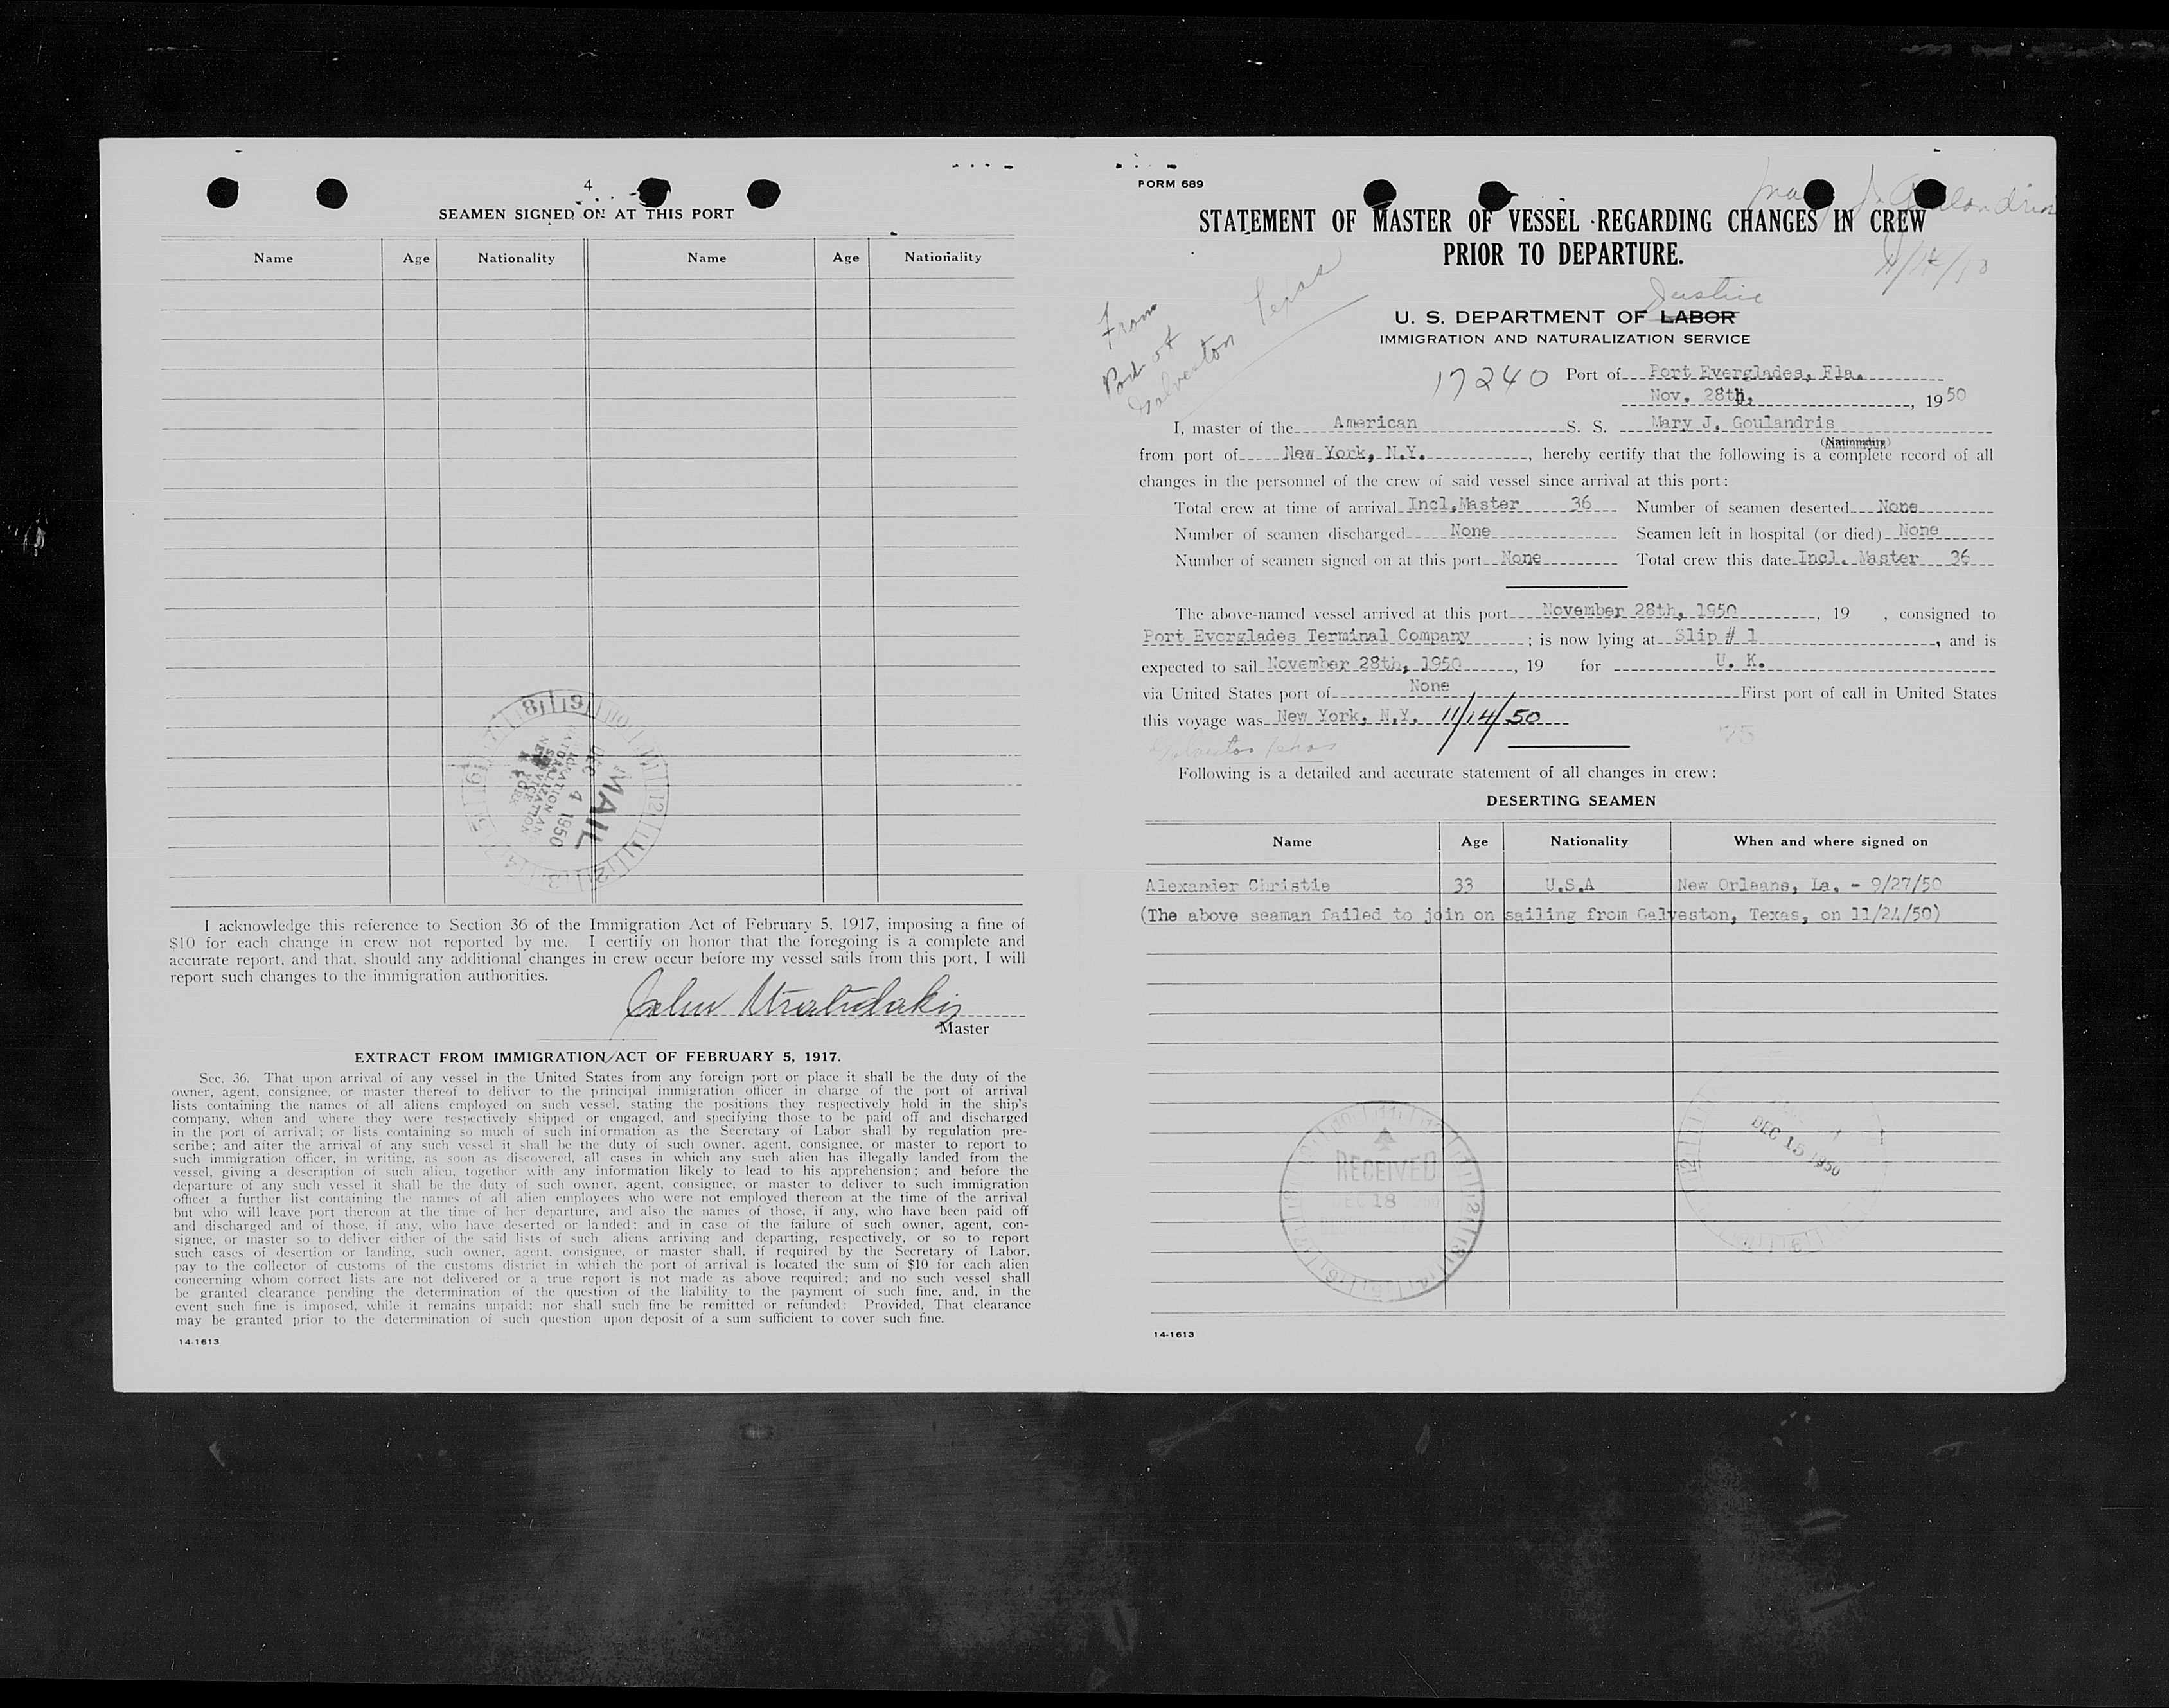 4
SEAMEN SIGNED ON AT THIS PORT
Name Age Nationality Name Age Nationality
8 9 10
DEC 4 1950
MAIL
I acknowledge this reference to Section 36 of the Immigration Act of February 5, 1917, imposing a fine of
$10 for each change in crew not reported by me. I certify on honor that the foregoing is a complete and
accurate report, and that, should any additional changes in crew occur before my vessel sails from this port, I will
report such changes to the immigration authorities.
John
Master
EXTRACT FROM IMMIGRATION ACT OF FEBRUARY 5, 1917.
Sec. 36. That upon arrival of any vessel in the United States from any foreign port or place it shall be the duty of the
owner, agent, consignee, or master thereof to deliver to the principal immigration officer in charge of the port of arrival
lists containing the names of all aliens employed on such vessel, stating the positions they respectively hold in the ship's
company, when and where they were respectively shipped or engaged, and specifying those to be paid off and discharged
in the port of arrival; or lists containing so much of such information as the Secretary of Labor shall by regulation pre-
scribe; and after the arrival of any such vessel it shall be the duty of such owner, agent, consignee, or master to report to
such immigration officer, in writing, as soon as discovered, all cases in which any such alien has illegally landed from the
vessel, giving a description of such alien, together with any information likely to lead to his apprehension; and before the
departure of any such vessel it shall be the duty of such owner, agent, consignee, or master to deliver to such immigration
officer a further list containing the names of all alien employees who were not employed thereon at the time of the arrival
but who will leave port thereon at the time of her departure, and also the names of those, if any, who have been paid off
and discharged and of those, if any, who have deserted or landed; and in case of the failure of such owner, agent, con-
signee, or master so to deliver either of the said lists of such aliens arriving and departing, respectively, or so to report
such cases of desertion or landing, such owner, agent, consignee, or master shall, if required by the Secretary of Labor,
pay to the collector of customs of the customs district in which the port of arrival is located the sum of $10 for each alien
concerning whom correct lists are not delivered or a true report is not made as above required; and no such vessel shall
be granted clearance pending the determination of the question of the liability to the payment of such fine, and, in the
event such fine is imposed, while it remains unpaid; nor shall such fine be remitted or refunded: Provided, That clearance
may be granted prior to the determination of such question upon deposit of a sum sufficient to cover such fine.
14-1613
FORM 689
Mary J. Goulandris
STATEMENT OF MASTER OF VESSEL REGARDING CHANGES IN CREW
PRIOR TO DEPARTURE.
From
Port of
Galveston Texas
Justice
U. S. DEPARTMENT OF LABOR
IMMIGRATION AND NATURALIZATION SERVICE
17240 Port of Port Everglades, Fla.
Nov. 28th, , 1950
I, master of the American S. S. Mary J. Goulandris
(Nationality)
from port of New York, N.Y. , hereby certify that the following is a complete record of all
changes in the personnel of the crew of said vessel since arrival at this port:
Total crew at time of arrival Incl.Master 36 Number of seamen deserted None
Number of seamen discharged None Seamen left in hospital (or died) None
Number of seamen signed on at this port None Total crew this date Incl. Master 36
The above-named vessel arrived at this port November 28th, 1950 , 19 , consigned to
Port Everglades Terminal Company ; is now lying at Slip # 1 , and is
expected to sail November 28th, 1950 , 19 for U. K.
via United States port of None First port of call in United States
this voyage was New York, N.Y. 11/14/50
Galveston Texas
Following is a detailed and accurate statement of all changes in crew:
DESERTING SEAMEN
Name Age Nationality When and where signed on
Alexander Christie 33 U.S.A New Orleans, La. - 9/27/50
(The above seaman failed to join on sailing from Galveston, Texas, on 11/24/50)
RECEIVED
DEC 18
DEC 15 1950
14-1613